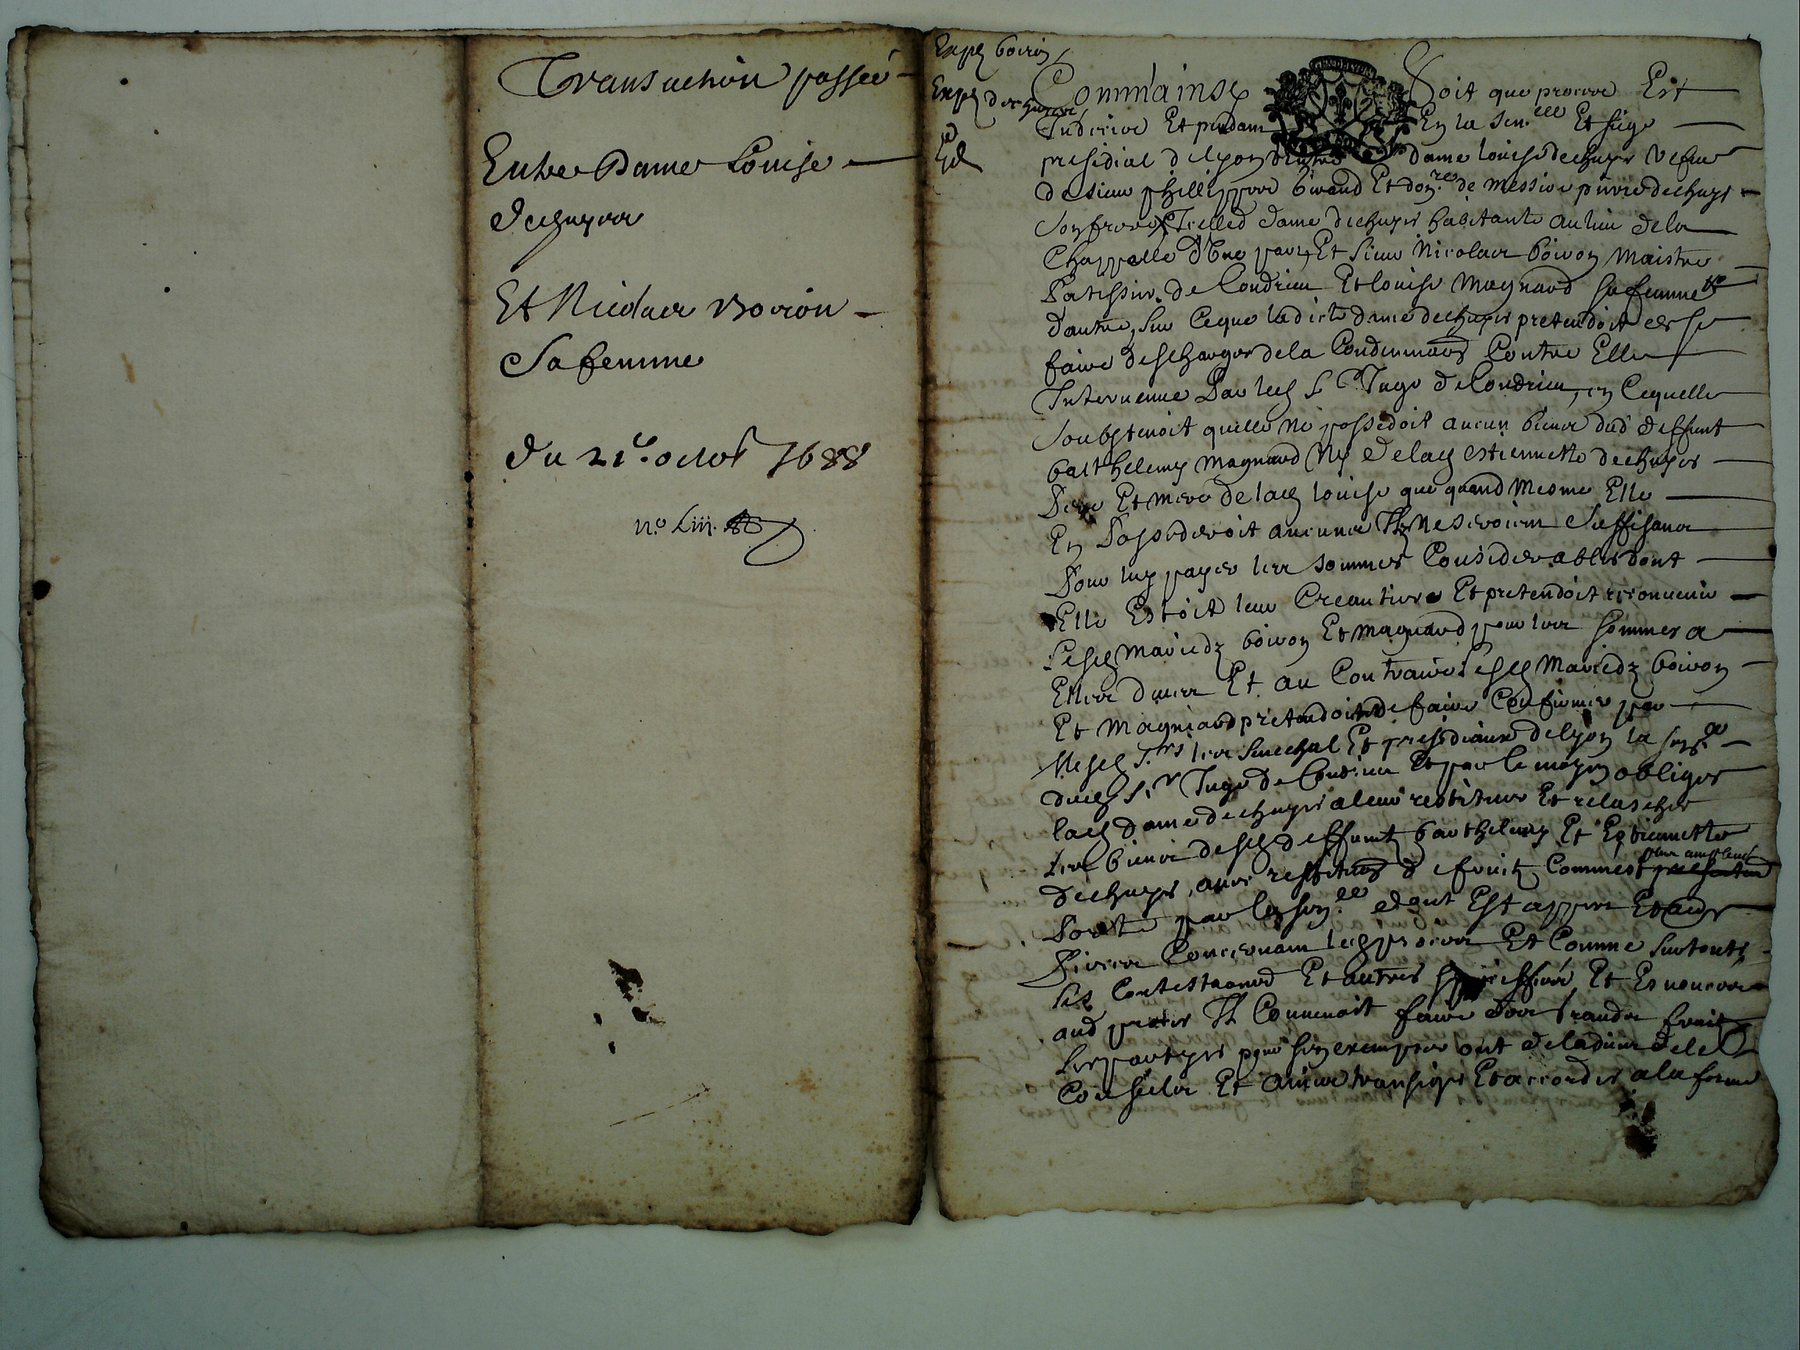 Transaction passeé
Entre Dame Louise
dechuyes
Et Nicolas Boiron
Sa femme
du 21e. octob 1688
n.o Liii.
Expe boiron
Expe dechuyes
Comme ainsy Soit que proces Est
Indecice Et pendant En la Sen.cee Et siege
presidial de lyon Entre dame louise dechuyes vefue
de sieur phillippes biraud Et don.re de messire pierre dechuyes
Son frere Icelle dame dechuyes habitante au lieu de la
Chappelle d'Une part, Et sieur Nicolas boiron Maistre
Patissier de Condrieu Et louise Magnard sa femme
dautre, Sur Ceque ladicte dame dechuyes pretendoit de se
faire descharger de la Condemnaon Contre Elle
Interuenue Par led Sr Juge de Condrieu, en Cequelle
Soubstenoit quelle ne possedoit aucun biens dud deffunt
barthelemy Magnard Ny de lad estiennette dechuyes
Pere Et mere de lad louise que quand Mesme Elle
En Possederoit aucuns Ilz ne seroient Suffisans
Pour luy payer les sommes Considerables dont
Elle Estoit leur Creantiere Et pretendoit reconuenir
Lesd Mariedz boiron Et Magnard pour les sommes a
Elles dues Et au Contraire Lesd Mariedz boiron
Et Magnard pretendoit de faire Confirmer par
Mesd Srs les Senechal Et presidiaux de lyon la sen.ce
dud Sr Juge de Condrieu Et par le moyen obliger
lad dame dechuyes aleur restituer Et relascher
Les biens desd deffuntz barthelemy Et Estiennette
dechuyes, auec restituon de fruitz Comme Est plus amplemt
Porté par lad sen.ce dont Est appel Et aux
Pieces Concernant led proces Et Comme Sur toutes
Ses Contestaons Et autres Et Ennouvoir
aud proces Il Conuenoit faire de grandz fraitz
Les partyes pour sen exempter ont de laduis de le
Conseilz Et amis transigé Et accordé a la forme